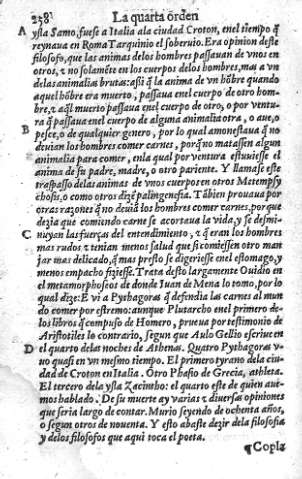 258 La quarta orden
A ysla Samo, fuese a Italia ala ciudad Croton, enel tiempo q̃
reynaua en Roma Tarquinio el soberuio. Era opinion deste
filosofo, que las animas delos hombres passauan de vnos en
otros, ⁊ no solamẽte en los cuerpos delos hombres, mas a vn
delas animalias brutas: assi q̃ la anima de vn hõbre quando
aquel hõbre era muerto, passaua enel cuerpo de otro hom-
bre, ⁊ aq̃l muerto passaua enel cuerpo de otro, o por ventu-
ra q̃ passaua enel cuerpo de alguna animalia otra, o aue, o
B pesce, o de qualquier genero, por lo qual amonestaua q̃ no
deuian los hombres comer carnes, porq̃ no matassen algun
animalia para comer, enla qual por ventura estuuiesse el
anima de su padre, madre, o otro pariente. Y llamase este
traspasso delas animas de vnos cuerpos en otros Metempsy
chosis, o como otros dizẽ palingenesia. Tãbien prouaua por
otras razones q̃ no deuiã los hombres comer carnes, porque
dezia que comiendo carne se acortaua la vida, y se desmi-
C nuyen las fuerças del entendimiento, ⁊ q̃ eran los hombres
mas rudos ⁊ tenian menos salud que si comiessen otro man
jar mas delicado, q̃ mas presto se digeriesse enel estomago, y
menos empacho fiziesse. Trata desto largamente Ouidio en
el metamorphoseos de donde Iuan de Mena lo tomo, por lo
qual dize: E vi a Pythagoras q̃ defendia las carnes al mun
do comer por estremo: aunque Plutarcho enel primero de-
los libros q̃ compuso de Homero, prueua por testimonio de
Aristoteles lo contrario, segun que Aulo Gelio escriue en
D el quarto dela noches de Athenas. Quatro Pythagoras v-
uo quasi en vn mesmo tiempo. El primero tyrano dela ciu
dad de Croton en Italia. Otro Phasio de Grecia, athleta.
El tercero dela ysla Zacintho: el quarto este de quien aue-
mos hablado. De su muerte ay varias ⁊ diuersas opiniones
que seria largo de contar. Murio seyendo de ochenta años,
o segun otros de nouenta. Y esto abaste dezir dela filosofia
y delos filosofos que aqui toca el poeta.
¶Copla